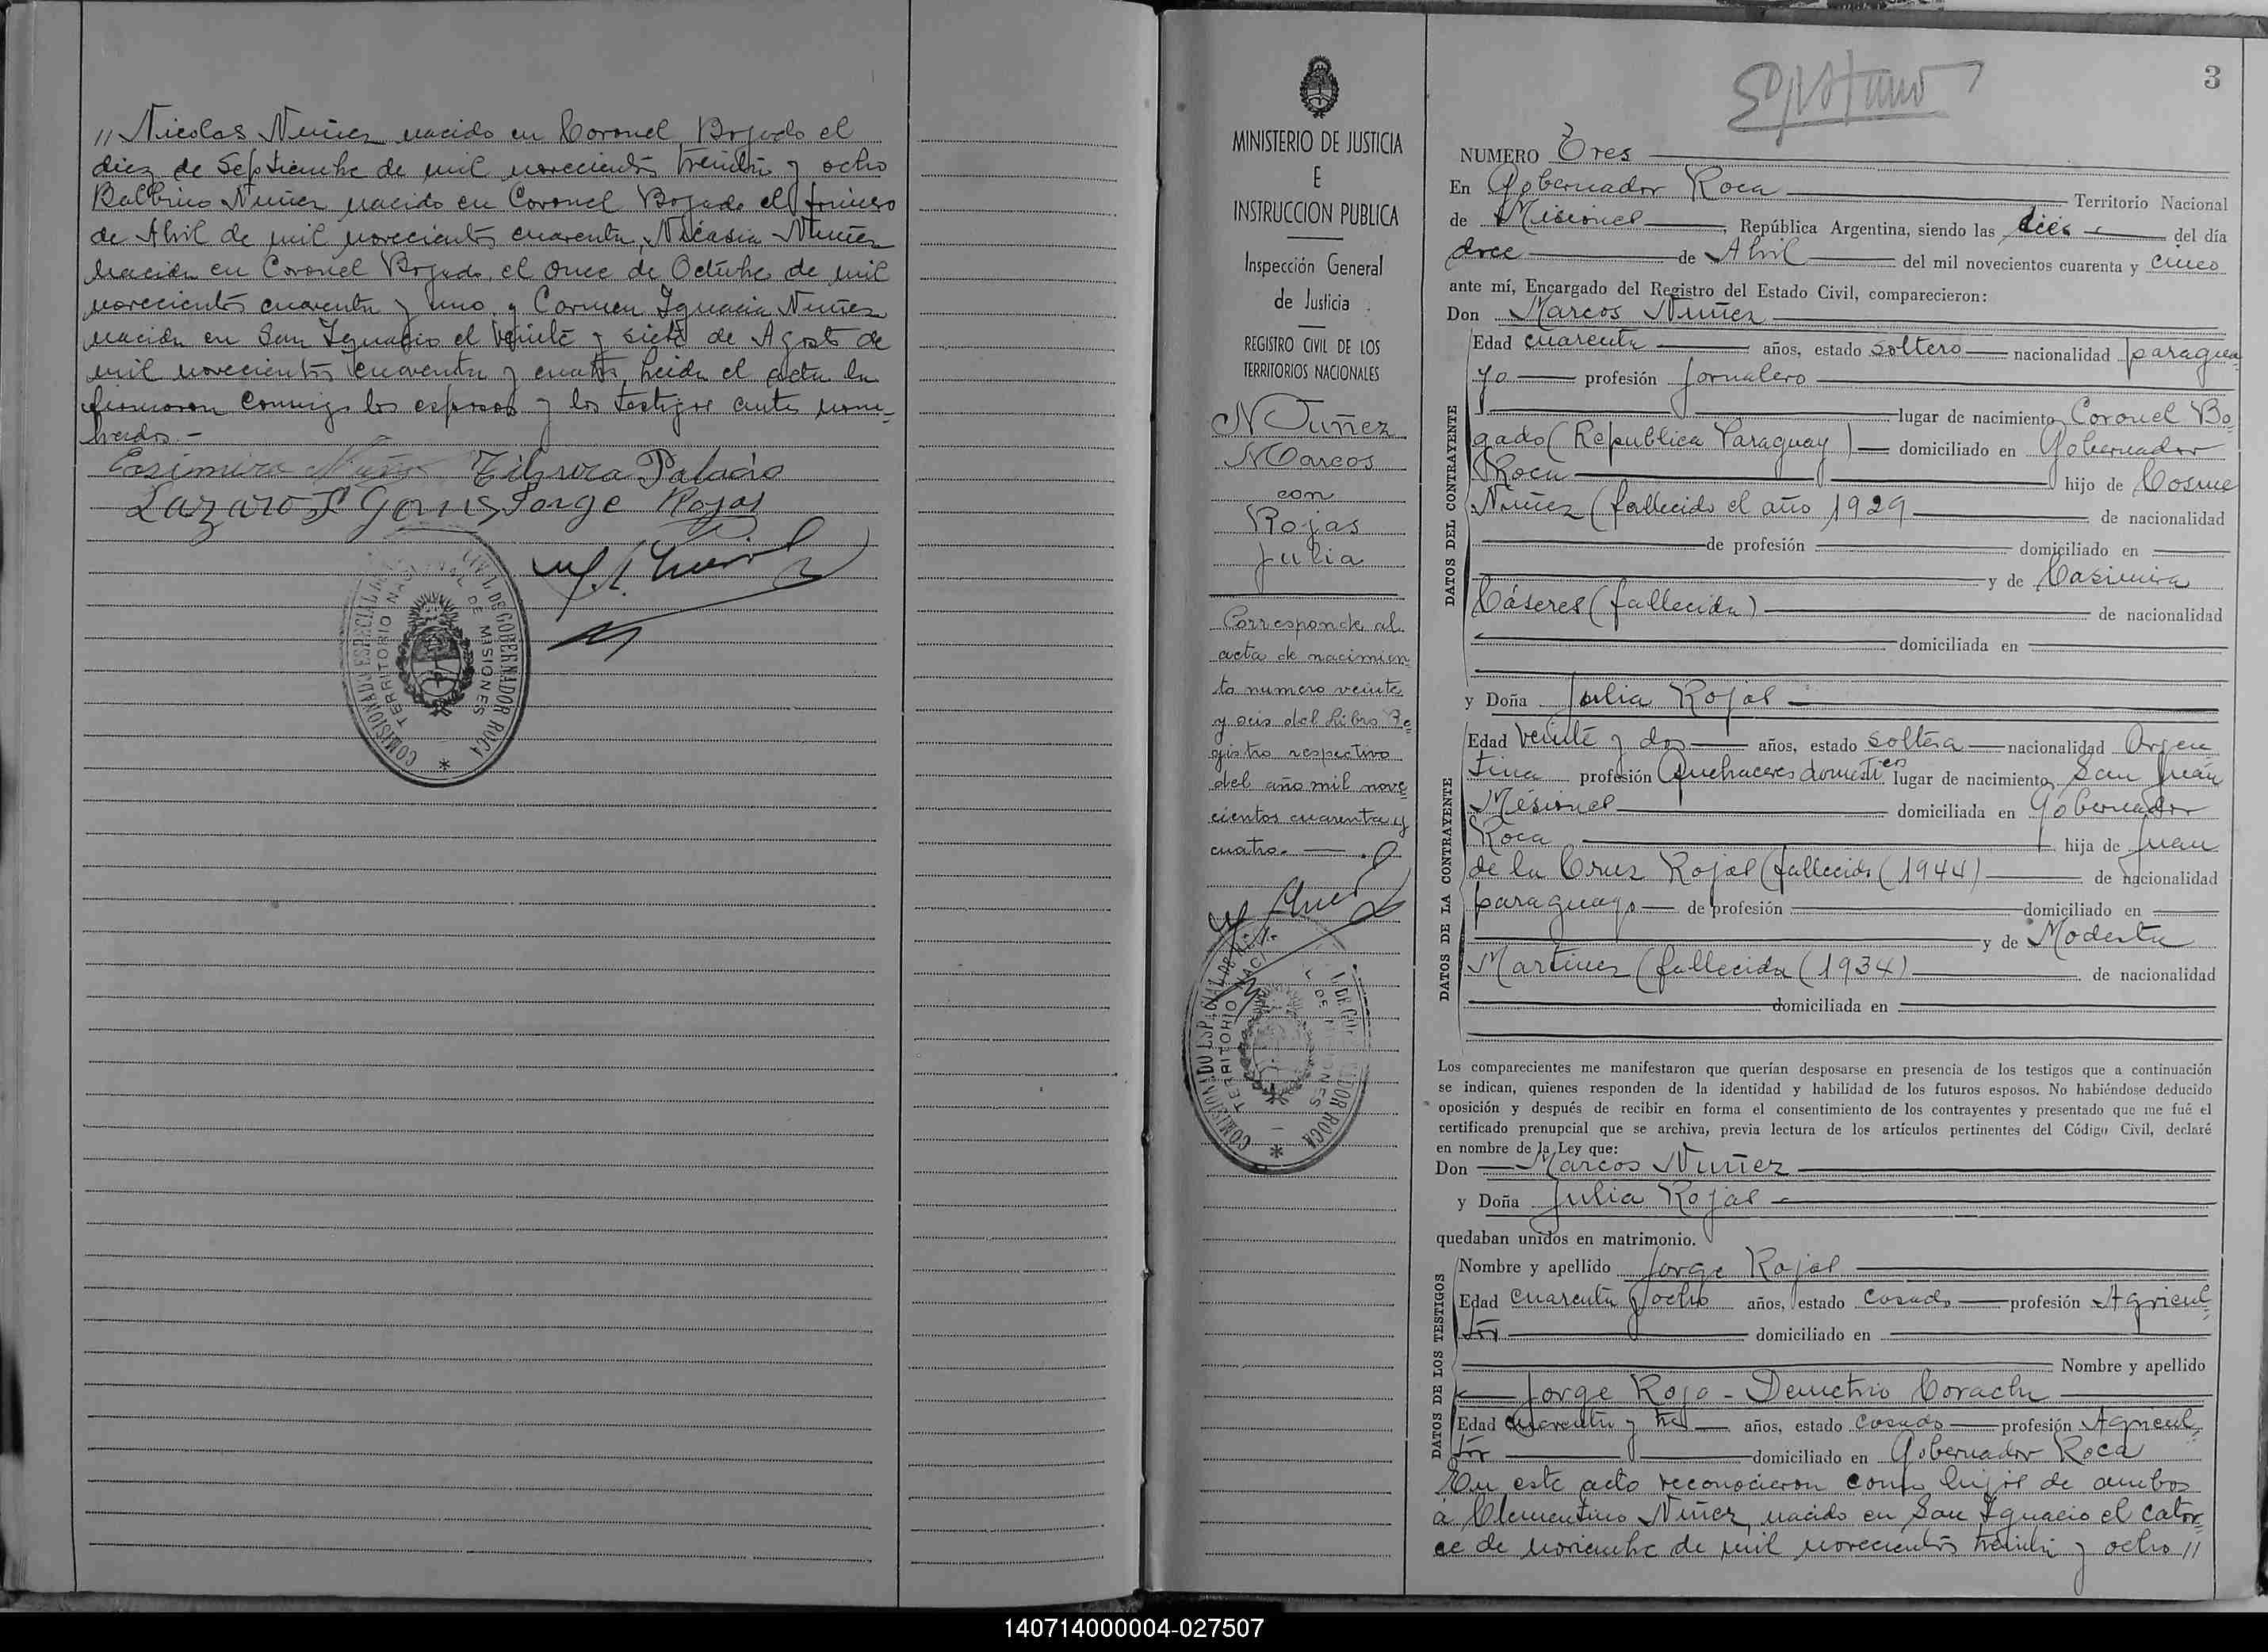 // Nicolas Nuñez nacido en Coronel Bogado el
diez de Septiembre de mil novecientos treinta y ocho
Balbino Nuñez nacido en Coronel Bogado el primero
de Abril de mil novecientos cuarenta, Nicasia Nuñez
nacida en Coronel Bogado, el once de Octubre de mil
novecientos cuarenta y uno y Carmen Ignacia Nuñez
nacida en San Ignacio el veinte y siete de Agosto de
mil novecientos cuarenta y cuatro, leida el acta la
firmaron conmigo los esposos y los testigos antes nom-
brados.-
Casimira Nuñez Tiburcia Palacio
Lazaro Gomes Jorge Rojas
COMISIONADO ESPECIAL
DE GOBERNADOR ROCA
TERRITORIO NACIONAL DE MISIONES
MINISTERIO DE JUSTICIA
E
INSTRUCCION PUBLICA
Inspección General
de Justicia
REGISTRO CIVIL DE LOS
TERRITORIOS NACIONALES
Nuñez
Marcos
con
Rojas
Julia
Corresponde al
acta de nacimien
to numero veinte
y seis del Libro Re
gistro respectivo
del año mil nove
cientos cuarenta y
cuatro.-
COMISIONADO ESPECIAL
TERRITORIO NACI
DOR ROCA
3
NUMERO Tres
En Gobernador Roca Territorio Nacional
de Misiones, República Argentina, siendo las diés del día
doce de Abril del mil novecientos cuarenta y cinco
ante mí, Encargado del Registro del Estado Civil, comparecieron:
Don Marcos Nuñez
DATOS DEL CONTRAYENTE
Edad cuarenta años, estado soltero nacionalidad paragua
yo profesión Jornalero
lugar de nacimiento Coronel Bo
gado (Republica Paraguay) domiciliado en Gobernador
Roca hijo de Cosme
Nuñez (fallecido el año 1929 de nacionalidad
de profesión domiciliado en
y de Casimira
Cáseres (fallecida) de nacionalidad
domiciliada en
y Doña Julia Rojas
DATOS DE LA CONTRAYENTE
Edad veinte y dos años, estado soltera nacionalidad Argen
tina profesión Quehaceres domesticos lugar de nacimiento San Juan
Misiones domiciliada en Gobernador
Roca hija de Juan
de la Cruz Rojas (fallecido (1944) de nacionalidad
paraguayo de profesión domiciliado en
y de Modesta
Martinez (fallecida (1934) de nacionalidad
domiciliada en
Los comparecientes me manifestaron que querían desposarse en presencia de los testigos que a continuación
se indican, quienes responden de la identidad y habilidad de los futuros esposos. No habiéndose deducido
oposición y después de recibir en forma el consentimiento de los contrayentes y presentado que me fué el
certificado prenupcial que se archiva, previa lectura de los artículos pertinentes del Código Civil, declaré
en nombre de la Ley que:
Don Marcos Nuñez
y Doña Julia Rojas
quedaban unidos en matrimonio.
DATOS DE LOS TESTIGOS
Nombre y apellido Jorge Rojas
Edad cuarenta y ocho años, estado casado profesión Agricul
tor domiciliado en
Nombre y apellido
Jorge Rojo - Demetrio
Edad cuarenta y tres años, estado casado profesión Agricul
tor domiciliado en Gobernador Roca
En este acto reconocieron como hijos de ambos
a Clementino Nuñez, nacido en San Ignacio el cator
ce de noviembre de mil novecientos treinta y ocho //
140714000004-027507